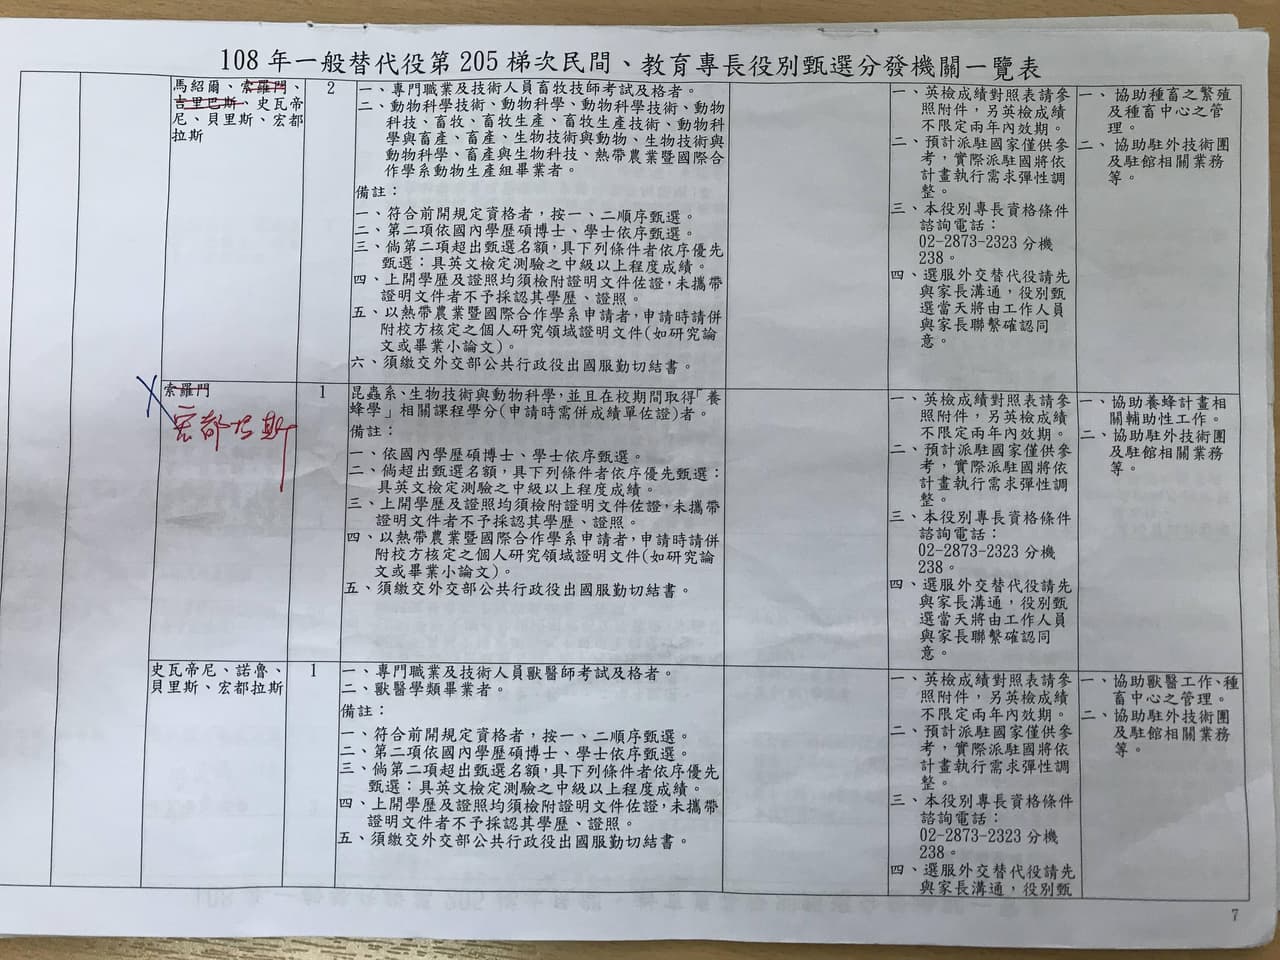 108 年一般替代役第 205 梯次民間、教育專長役別甄選分發機關一覽表
馬紹爾、索羅門、
吉里巴斯、史瓦帝
尼、貝里斯、宏都
拉斯
2
一、專門職業及技術人員畜牧技師考試及格者。
二、動物科學技術、動物科學、動物科學技術、動物
科技、畜牧、畜牧生產、畜牧生產技術、動物科
學與畜產、畜產、生物技術與動物、生物技術與
動物科學、畜產與生物科技、熱帶農業暨國際合
作學系動物生產組畢業者。
備註：
一、符合前開規定資格者，按一、二順序甄選。
二、第二項依國內學歷碩博士、學士依序甄選。
三、倘第二項超出甄選名額，具下列條件者依序優先
甄選：具英文檢定測驗之中級以上程度成績。
四、上開學歷及證照均須檢附證明文件佐證，未攜帶
證明文件者不予採認其學歷、證照。
五、以熱帶農業暨國際合作學系申請者，申請時請併
附校方核定之個人研究領域證明文件(如研究論
文或畢業小論文)。
六、須繳交外交部公共行政役出國服勤切結書。
一、英檢成績對照表請參
照附件，另英檢成績
不限定兩年內效期。
二、預計派駐國家僅供參
考，實際派駐國將依
計畫執行需求彈性調
整。
三、本役別專長資格條件
諮詢電話：
02-2873-2323 分機
238。
四、選服外交替代役請先
與家長溝通，役別甄
選當天將由工作人員
與家長聯繫確認同
意。
一、協助種畜之繁殖
及種畜中心之管
理。
二、協助駐外技術團
及駐館相關業務
等。
索羅門
宏都拉斯
1
昆蟲系、生物技術與動物科學，並且在校期間取得「養
蜂學」相關課程學分(申請時需併成績單佐證)者。
備註：
一、依國內學歷碩博士、學士依序甄選。
二、倘超出甄選名額，具下列條件者依序優先甄選：
具英文檢定測驗之中級以上程度成績。
三、上開學歷及證照均須檢附證明文件佐證，未攜帶
證明文件者不予採認其學歷、證照。
四、以熱帶農業暨國際合作學系申請者，申請時請併
附校方核定之個人研究領域證明文件(如研究論
文或畢業小論文)。
五、須繳交外交部公共行政役出國服勤切結書。
一、英檢成績對照表請參
照附件，另英檢成績
不限定兩年內效期。
二、預計派駐國家僅供參
考，實際派駐國將依
計畫執行需求彈性調
整。
三、本役別專長資格條件
諮詢電話：
02-2873-2323 分機
238。
四、選服外交替代役請先
與家長溝通，役別甄
選當天將由工作人員
與家長聯繫確認同
意。
一、協助養蜂計畫相
關輔助性工作。
二、協助駐外技術團
及駐館相關業務
等。
史瓦帝尼、諾魯、
貝里斯、宏都拉斯
1
一、專門職業及技術人員獸醫師考試及格者。
二、獸醫學類畢業者。
備註：
一、符合前開規定資格者，按一、二順序甄選。
二、第二項依國內學歷碩博士、學士依序甄選。
三、倘第二項超出甄選名額，具下列條件者依序優先
甄選：具英文檢定測驗之中級以上程度成績。
四、上開學歷及證照均須檢附證明文件佐證，未攜帶
證明文件者不予採認其學歷、證照。
五、須繳交外交部公共行政役出國服勤切結書。
一、英檢成績對照表請參
照附件，另英檢成績
不限定兩年內效期。
二、預計派駐國家僅供參
考，實際派駐國將依
計畫執行需求彈性調
整。
三、本役別專長資格條件
諮詢電話：
02-2873-2323 分機
238。
四、選服外交替代役請先
與家長溝通，役別甄
一、協助獸醫工作、種
畜中心之管理。
二、協助駐外技術團
及駐館相關業務
等。
7